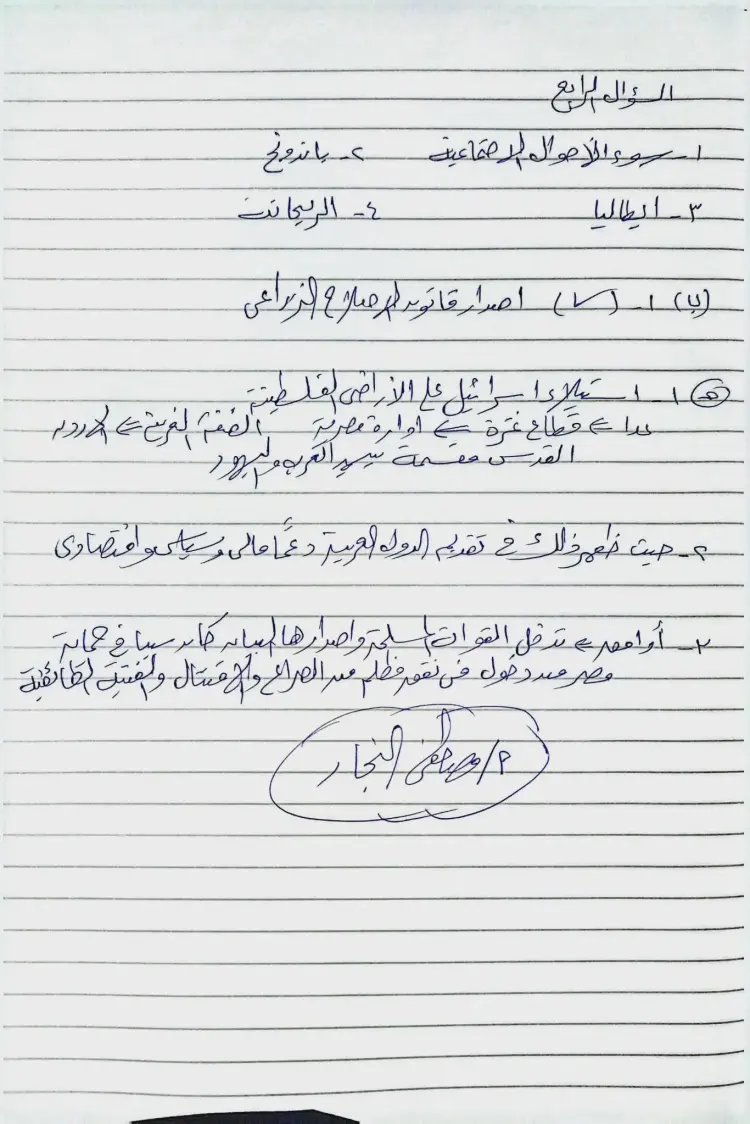 السؤال الرابع
١- سوء الأحوال الاجتماعية ٢- باندونج
٣- ايطاليا ٤- الريجانت
(ب) ١- (✓) اصدار قانون الاصلاح الزراعى
(جـ) ١- استيلاء اسرائيل على الأراضى الفلسطينية
عدا ⇐ قطاع غزة ⇐ ادارة مصرية الضفة الغربية ⇐ الاردن
القدس مقسمة بين العرب واليهود
٢- حيث ظهر ذلك فى تقديم الدول العربية دعمًا مالى وسياسى واقتصادى
٣- أوافق ⇐ تدخل القوات المسلحة واصدارها البيان كان سببا فى حماية
مصر من دخول فى نفق مظلم من الصراع والاقتتال والفتنة الطائفية
م/مصطفى النجار